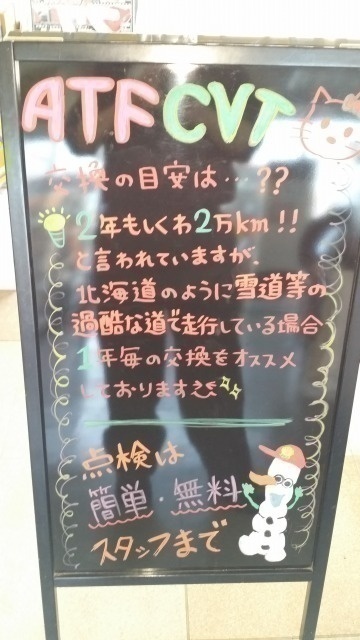 ATF CVT
交換の目安は…??
2年もしくわ2万km!!
と言われていますが、
北海道のように雪道等の
過酷な道で走行している場合
1年毎の交換をオススメ
しております
点検は
簡単・無料
スタッフまで